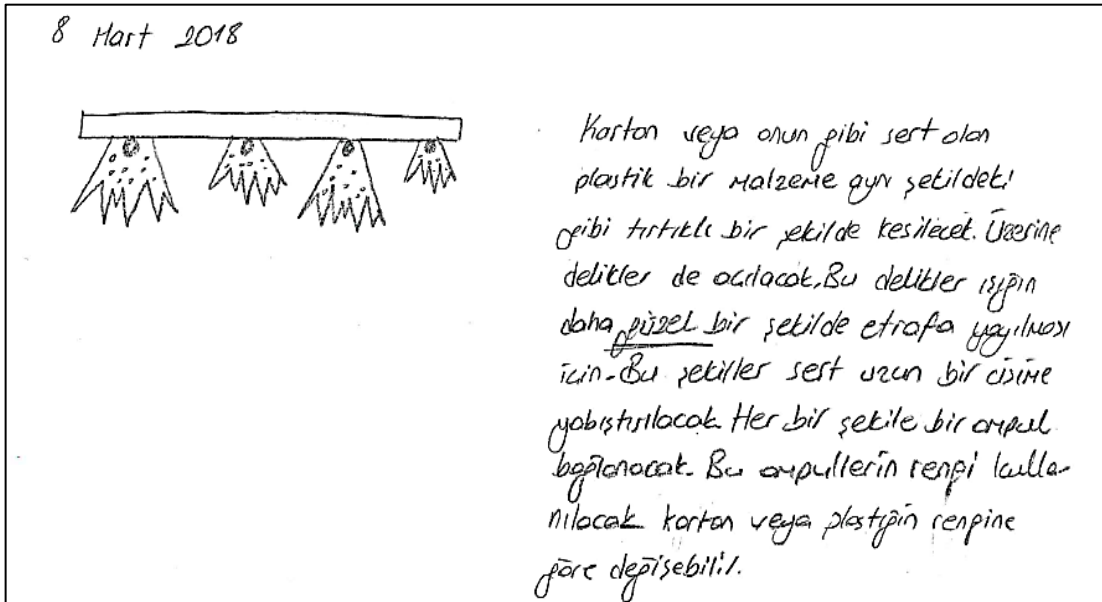 8 Mart 2018
Karton veya onun gibi sert olan
plastik bir malzeme aynı şekildeki
gibi tırtıklı bir şekilde kesilecek. Üzerine
delikler de açılacak. Bu delikler ışığın
daha güzel bir şekilde etrafa yayılması
için. Bu şekiller sert uzun bir cisime
yabıştırılacak. Her bir şekile bir ampul
bağlanacak. Bu ampullerin rengi kulla-
nılacak karton veya plastiğin rengine
göre değişebilir.